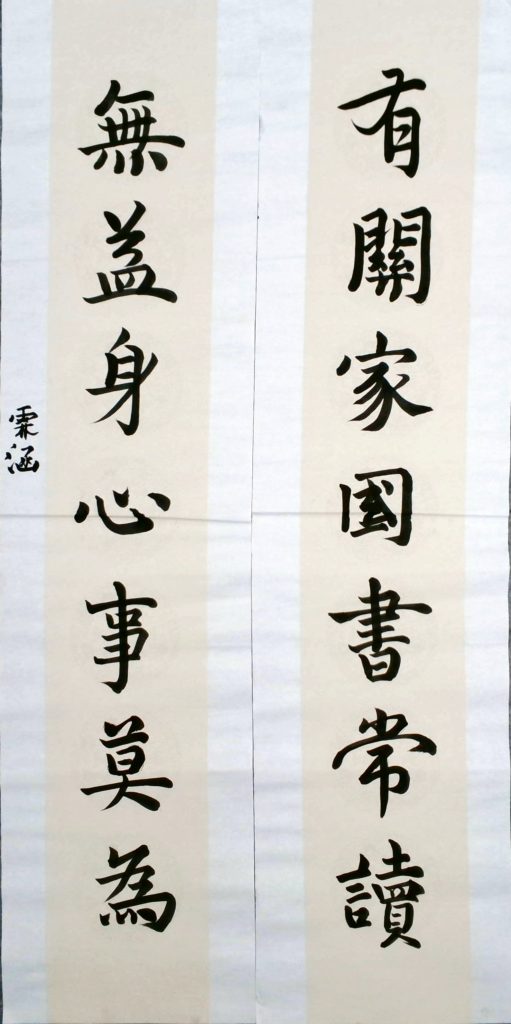 有關家國書常讀
無益身心事莫為
霖涵